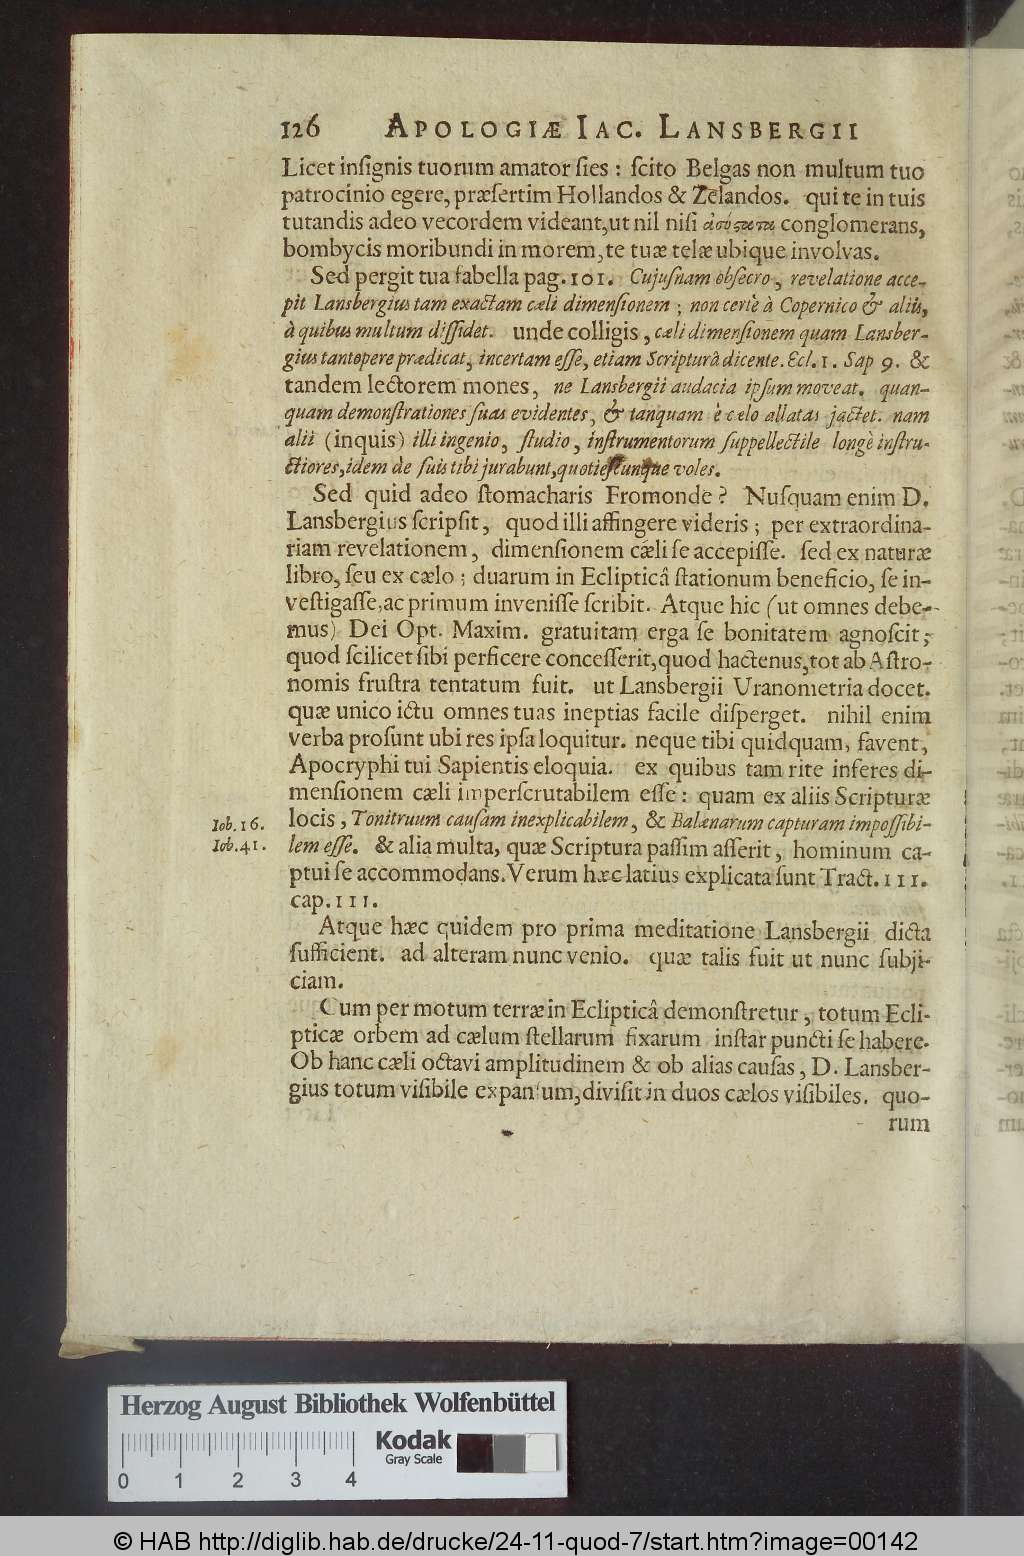 126 APOLOGIÆ IAC. LANSBERGII
Licet inſignis tuorum amator ſies : ſcito Belgas non multum tuo
patrocinio egere, præſertim Hollandos & Zelandos. qui te in tuis
tutandis adeo vecordem videant, ut nil niſi conglomerans,
bombycis moribundi in morem, te tuæ telæ ubique involvas.
Sed pergit tua fabella pag. 101. Cujuſnam obſecro, revelatione acce-
pit Lansbergius tam exactam cæli dimenſionem ; non certè à Copernico & aliis,
à quibus multum diſſidet. unde colligis, cæli dimenſionem quam Lansber-
gius tantopere prædicat, incertam eſſe, etiam Scripturâ dicente. Ecl. 1. Sap 9. &
tandem lectorem mones, ne Lansbergii audacia ipſum moveat. quan-
quam demonſtrationes ſuas evidentes, & tanquam è cælo allatas jactet. nam
alii (inquis) illi ingenio, ſtudio, inſtrumentorum ſuppellectile longè inſtru-
ctiores, idem de ſuis tibi jurabunt, quotieſcunque voles.
Sed quid adeo ſtomacharis Fromonde ? Nuſquam enim D.
Lansbergius ſcripſit, quod illi affingere videris ; per extraordina-
riam revelationem, dimenſionem cæli ſe accepiſſe. ſed ex naturæ
libro, ſeu ex cælo ; duarum in Eclipticâ ſtationum beneficio, ſe in-
veſtigaſſe, ac primum inveniſſe ſcribit. Atque hic (ut omnes debe-
mus) Dei Opt. Maxim. gratuitam erga ſe bonitatem agnoſcit ;
quod ſcilicet ſibi perficere conceſſerit, quod hactenus, tot ab Aſtro-
nomis fruſtra tentatum fuit. ut Lansbergii Uranometria docet.
quæ unico ictu omnes tuas ineptias facile diſperget. nihil enim
verba proſunt ubi res ipſa loquitur. neque tibi quidquam, favent,
Apocryphi tui Sapientis eloquia. ex quibus tam rite inferes di-
menſionem cæli imperſcrutabilem eſſe : quam ex aliis Scripturæ
Iob. 16. locis, Tonitruum cauſam inexplicabilem, & Balænarum capturam impoſſibi-
Iob. 41. lem eſſe. & alia multa, quæ Scriptura paſſim aſſerit, hominum ca-
ptui ſe accommodans. Verum hæc latius explicata ſunt Tract. III.
cap. III.
Atque hæc quidem pro prima meditatione Lansbergii dicta
ſufficient. ad alteram nunc venio. quæ talis fuit ut nunc ſubji-
ciam.
Cum per motum terræ in Eclipticâ demonſtretur, totum Ecli-
pticæ orbem ad cælum ſtellarum fixarum inſtar puncti ſe habere.
Ob hanc cæli octavi amplitudinem & ob alias cauſas, D. Lansber-
gius totum viſibile expanſum, diviſit in duos cælos viſibiles. quo-
rum
Herzog August Bibliothek Wolfenbüttel
Kodak
Gray Scale
0 1 2 3 4
© HAB http://diglib.hab.de/drucke/24-11-quod-7/start.htm?image=00142